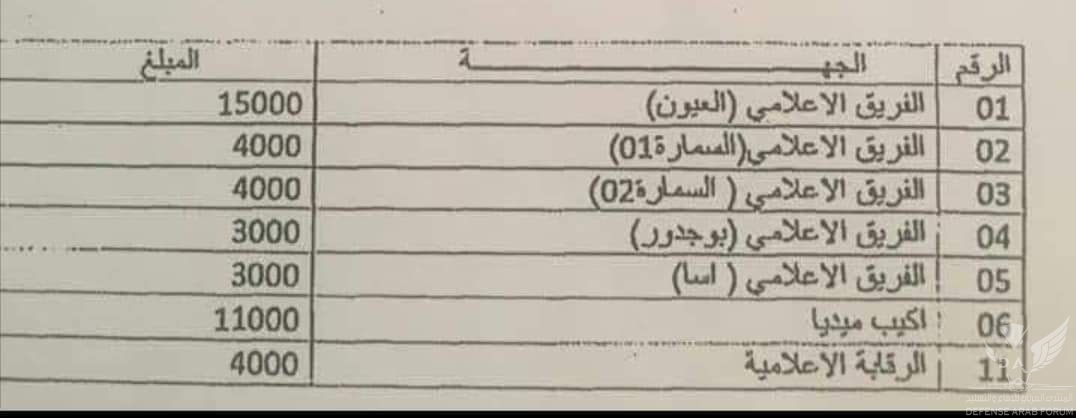 الرقم الجهـــــــــــــــة المبلغ
01 الفريق الاعلامي (العيون) 15000
02 الفريق الاعلامي(السمارة01) 4000
03 الفريق الاعلامي ( السمارة02) 4000
04 الفريق الاعلامي (بوجدور) 3000
05 الفريق الاعلامي ( اسا) 3000
06 اكيب ميديا 11000
11 الرقابة الاعلامية 4000
DEFENSE ARAB FORUM